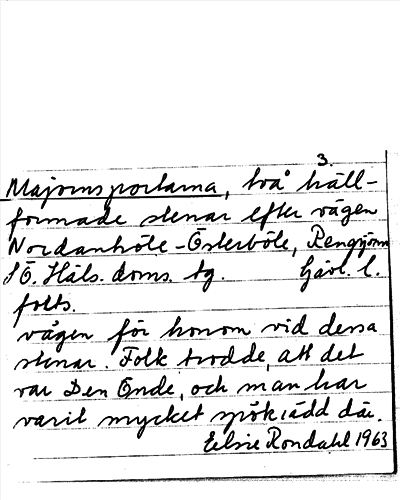 3.
Majorns portarna, två häll-
formade stenar efter vägen
Nordanhöle - Österböle, Rengsjö sn
SÖ. Häls. doms. tg. Gävl. l.
forts.
vägen för honom vid dessa
stenar. Folk trodde, att det
var Den Onde, och man har
varit mycket spökrädd där.
Elsie Rondahl 1963